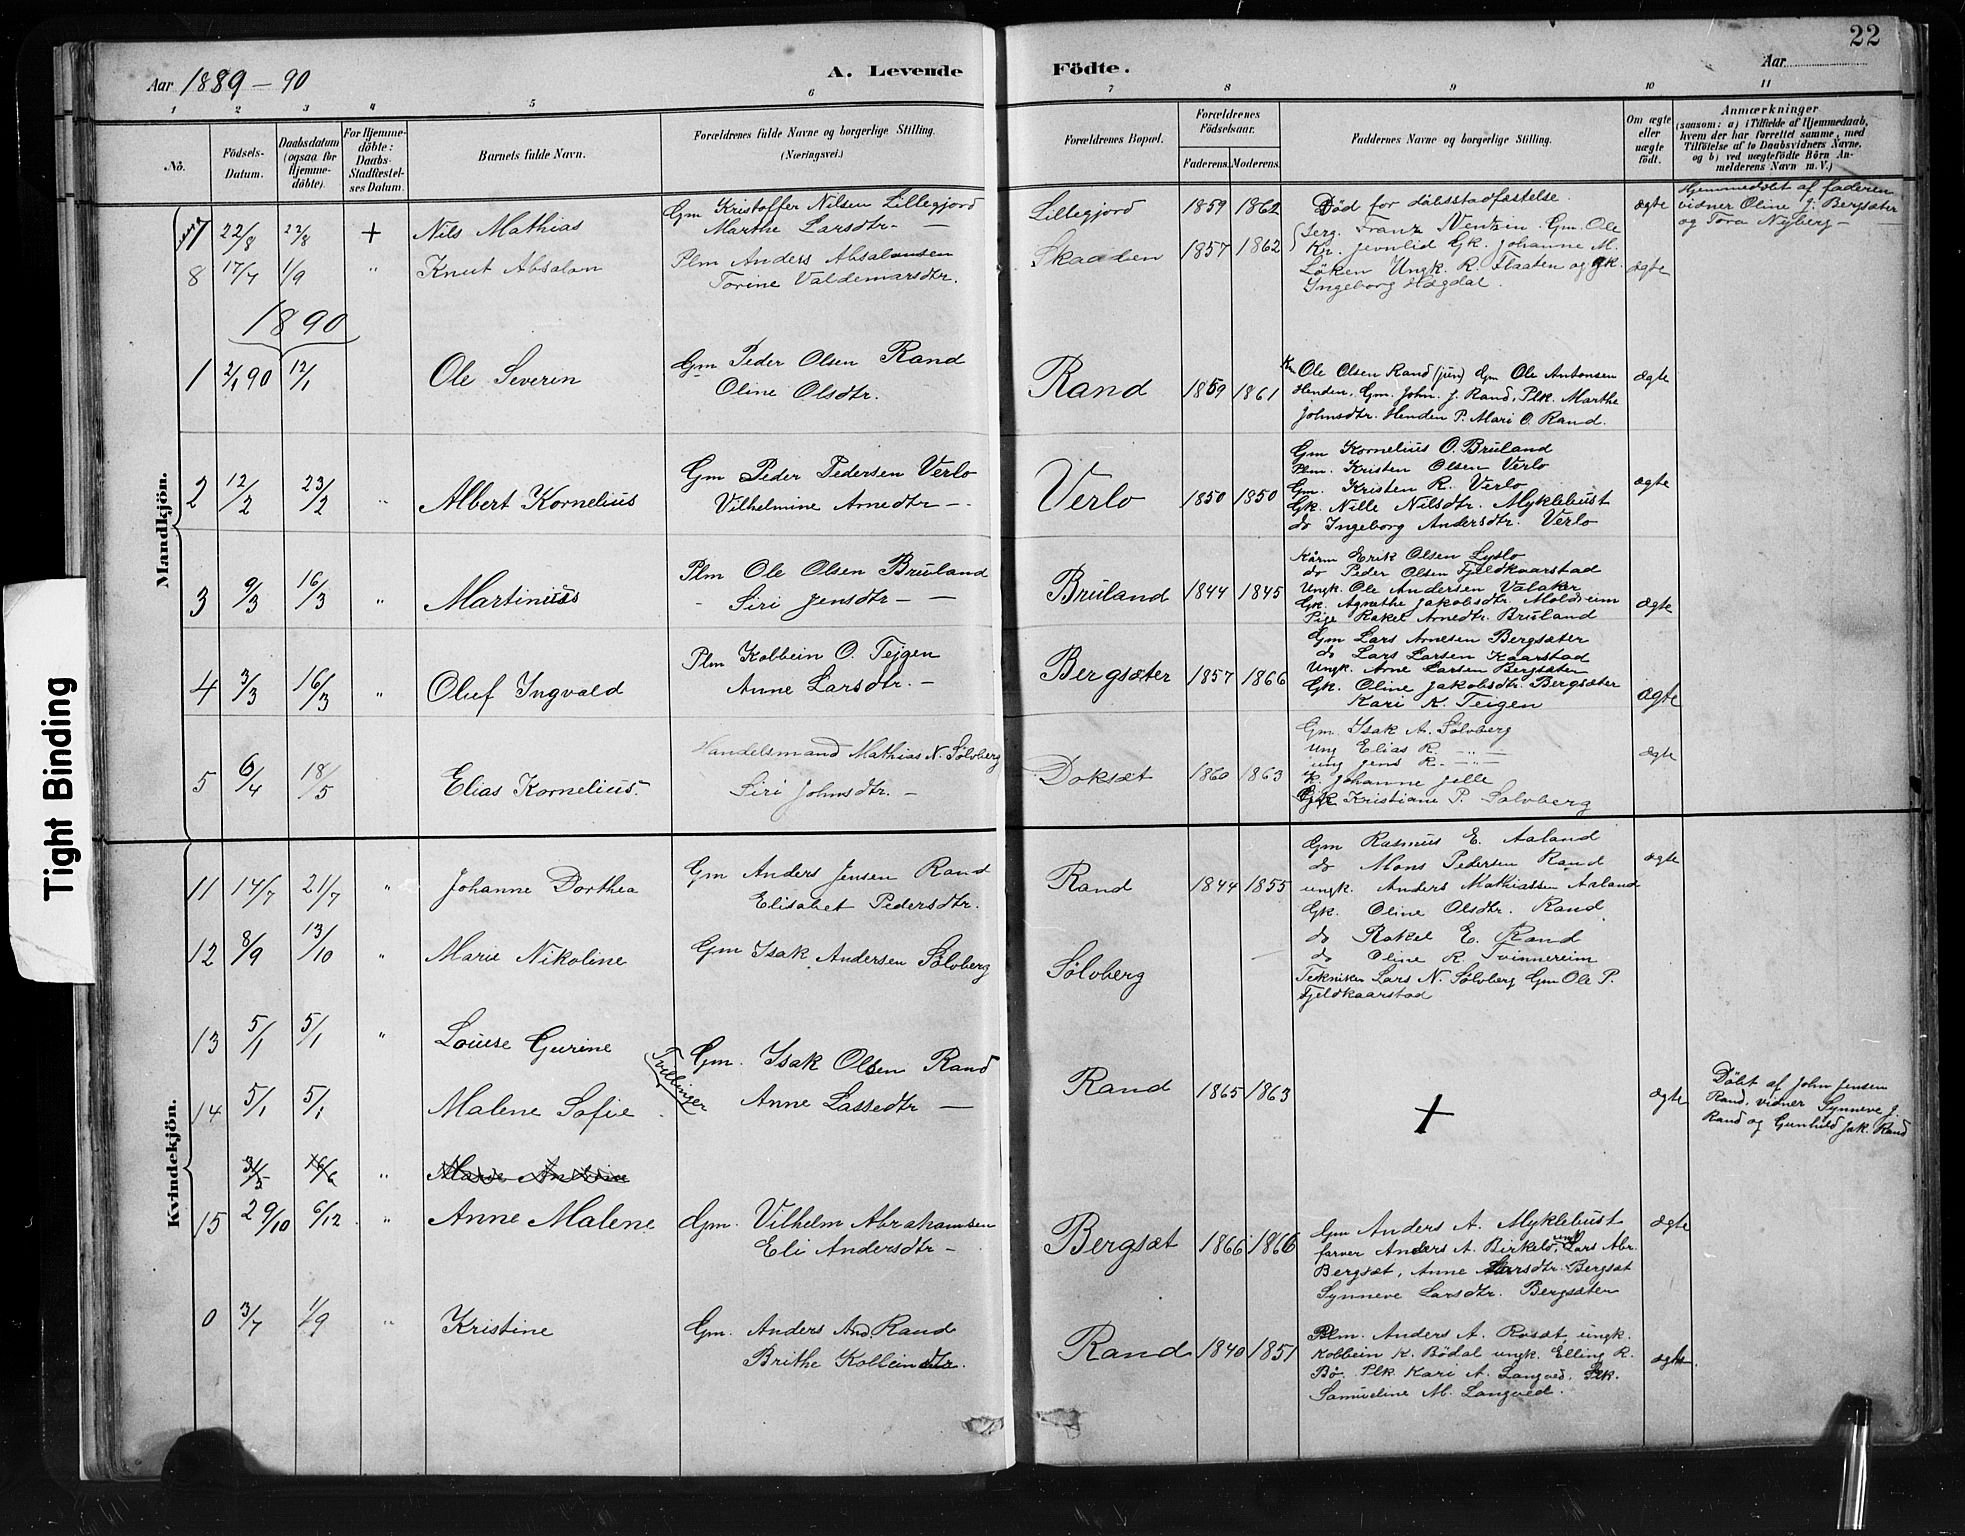 22
Aar 1889-90
A. Levende Födte.
Aar
1 2 3 4 5 6 7 8 9 10 11
No.
Födsels-Datum.
Daabsdatum (ogsaa for Hjemmedöbte).
For Hjemmedöbte: Daabs-Stadfæstelses Datum.
Barnets fulde Navn.
Forældrenes fulde Navne og borgerlige Stilling. (Næringsvei.)
Forældrenes Bopæl.
Forældrenes Födselsaar.
Faderens. Moderens.
Faddernes Navne og borgerlige Stilling.
Om ægte eller uægte födt.
Anmærkninger (saasom: a) i Tilfælde af Hjemmedaab, hvem der har forrettet samme, med Tilföielse af to Daabsvidners Navne, og b) ved uægtefödte Börn Anmelderens Navn m. V.)
Mandkjön.
7 22/8 22/8 + Nils Mathias
Gm Kristoffer Nilsen Lillegjord
Marthe Larsdtr. —
Lillegjord 1859 1862
Död for dåbsstadfæstelse.
ægte
Hjemmedöbt af faderen
vidner Oline J. Bergsæter
og Tora Nyberg —
8 17/7 1/9 " Knut Absalon
Plm Anders Absalonsen
Torine Valdemarsdtr.
Skaaden 1857 1862
Serg. Franz Wentzin. Gm. Ole
Kr. Jevnlid Gk. Johanne M.
Löken Ungk. R. Flaaten og gk.
Ingeborg Hægdal.
ægte
1890
1 2/1 90 12/1 Ole Severin
Gm Peder Olsen Rand
Oline Olsdtr.
Rand 1859 1861
Km Ole Olsen Rand (jun) Gm Ole Antonsen
Henden, Gm. John. J. Rand, Plk. Marthe
Johnsdtr. Henden P. Mari O. Rand.
ægte
2 12/2 23/2 " Albert Kornelius
Gm Peder Pedersen Verlo
Vilhelmine Arnedtr —
Verlo 1850 1850
Gm Kornelius O. Bruland
Plm. Kristen Olsen Verlo
Gm. Kristen R. Verlo
Gk. Nille Nilsdtr. Myklebust
do Ingeborg Andersdtr. Verlo
ægte
3 9/3 16/3 " Martinus
Plm Ole Olsen Bruland
- Siri Jensdtr — —
Bruland 1844 1845
Kårm Erik Olsen Lyslo
do Peder Olsen Fjeldkaarstad
Ungk. Ole Andersen Valaker
Gk. Agnethe Jakobsdtr. Moldreim
Pige Rakel Arnedtr. Bruland
ægte
4 3/3 16/3 " Oluf Ingvald
Plm Kolbein O. Tejgen
Anne Larsdtr. —
Bergsæter 1857 1866
Gm Lars Arnesen Bergsæter
do Lars Larsen Kaarstad
Ungk. Arne Larsen Bergsæter
Gk. Oline Jakobsdtr. Bergsæter
Kari K. Teigen
ægte
5 6/4 18/5 Elias Kornelius.
Handelsmand Mathias N. Sölvberg
Siri Johnsdtr. —
Doksæt 1860 1863
Gm. Isak A. Sölvberg
ung Elias R. — " —
ung Jens R. — " —
K. Johanne Jelle
Gk Kristiane P. Sölvberg
ægte
Kvindekjön.
11 14/7 21/7 " Johanne Dorthea
Gm Anders Jensen Rand
Elisabet Pedersdtr.
Rand 1844 1855
Gm Rasmus E. Aaland
do Mons Pedersen Rand
ungk. Anders Mathiassen Aaland
Gk. Oline Olsdtr. Rand
do Rakel E. Rand
do Oline R. Tvinnereim
ægte
12 8/9 13/10 " Marie Nikoline
Gm Isak Andersen Sölvberg
Sölvberg
Tekniker Lars N. Sölvberg Gm Ole P.
Fjeldkaarstad
13 5/1 5/1 " Louise Gurine
14 5/1 5/1 Malene Sofie
Tvillinger
Gm. Isak Olsen Rand
Anne Lassedtr —
Rand 1865 1863
+
ægte
Döbt af John Jensen
Rand, vidner Synneve J.
Rand og Gunhild Jak. Rand
31/5 16/6 "
15 29/10 6/12 " Anne Malene
Gm. Vilhelm Abrahamsen
Eli Andersdtr —
Bergsæt 1866 1866
Gm Anders A. Myklebust
farver Anders A. Birkelo, ungk Lars Abr.
Bergsæt, Anne Larsdtr. Bergsæt
Synneve Larsdtr. Bergsæter
ægte
0 3/7 1/9 " Kristine
Gm. Anders And. Rand
Brithe Kolbeinsdtr.
Rand 1840 1851
Plm. Anders A. Rosæt, ungk.
Kolbein K. Bödal ungk. Elling R.
Bö. Plk Kari A. Langved, Plk.
Samueline M. Langved.
ægte
Tight Binding